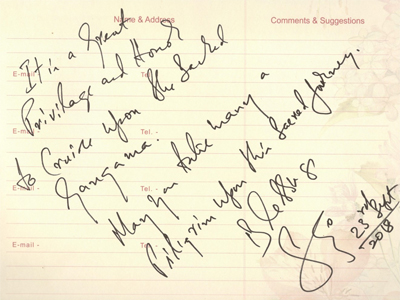 Name & Address
Comments & Suggestions
It is a Great
Privilage and Honor
to Cruise upon the Sacred
Gangama.
May you take many a
Piligrim upon this Sacred Journey.
Blessings
23rd Sept
2018
E-mail -
Tel. -
E-mail -
Tel. -
E-mail -
Tel. -
E-mail -
E-mail -